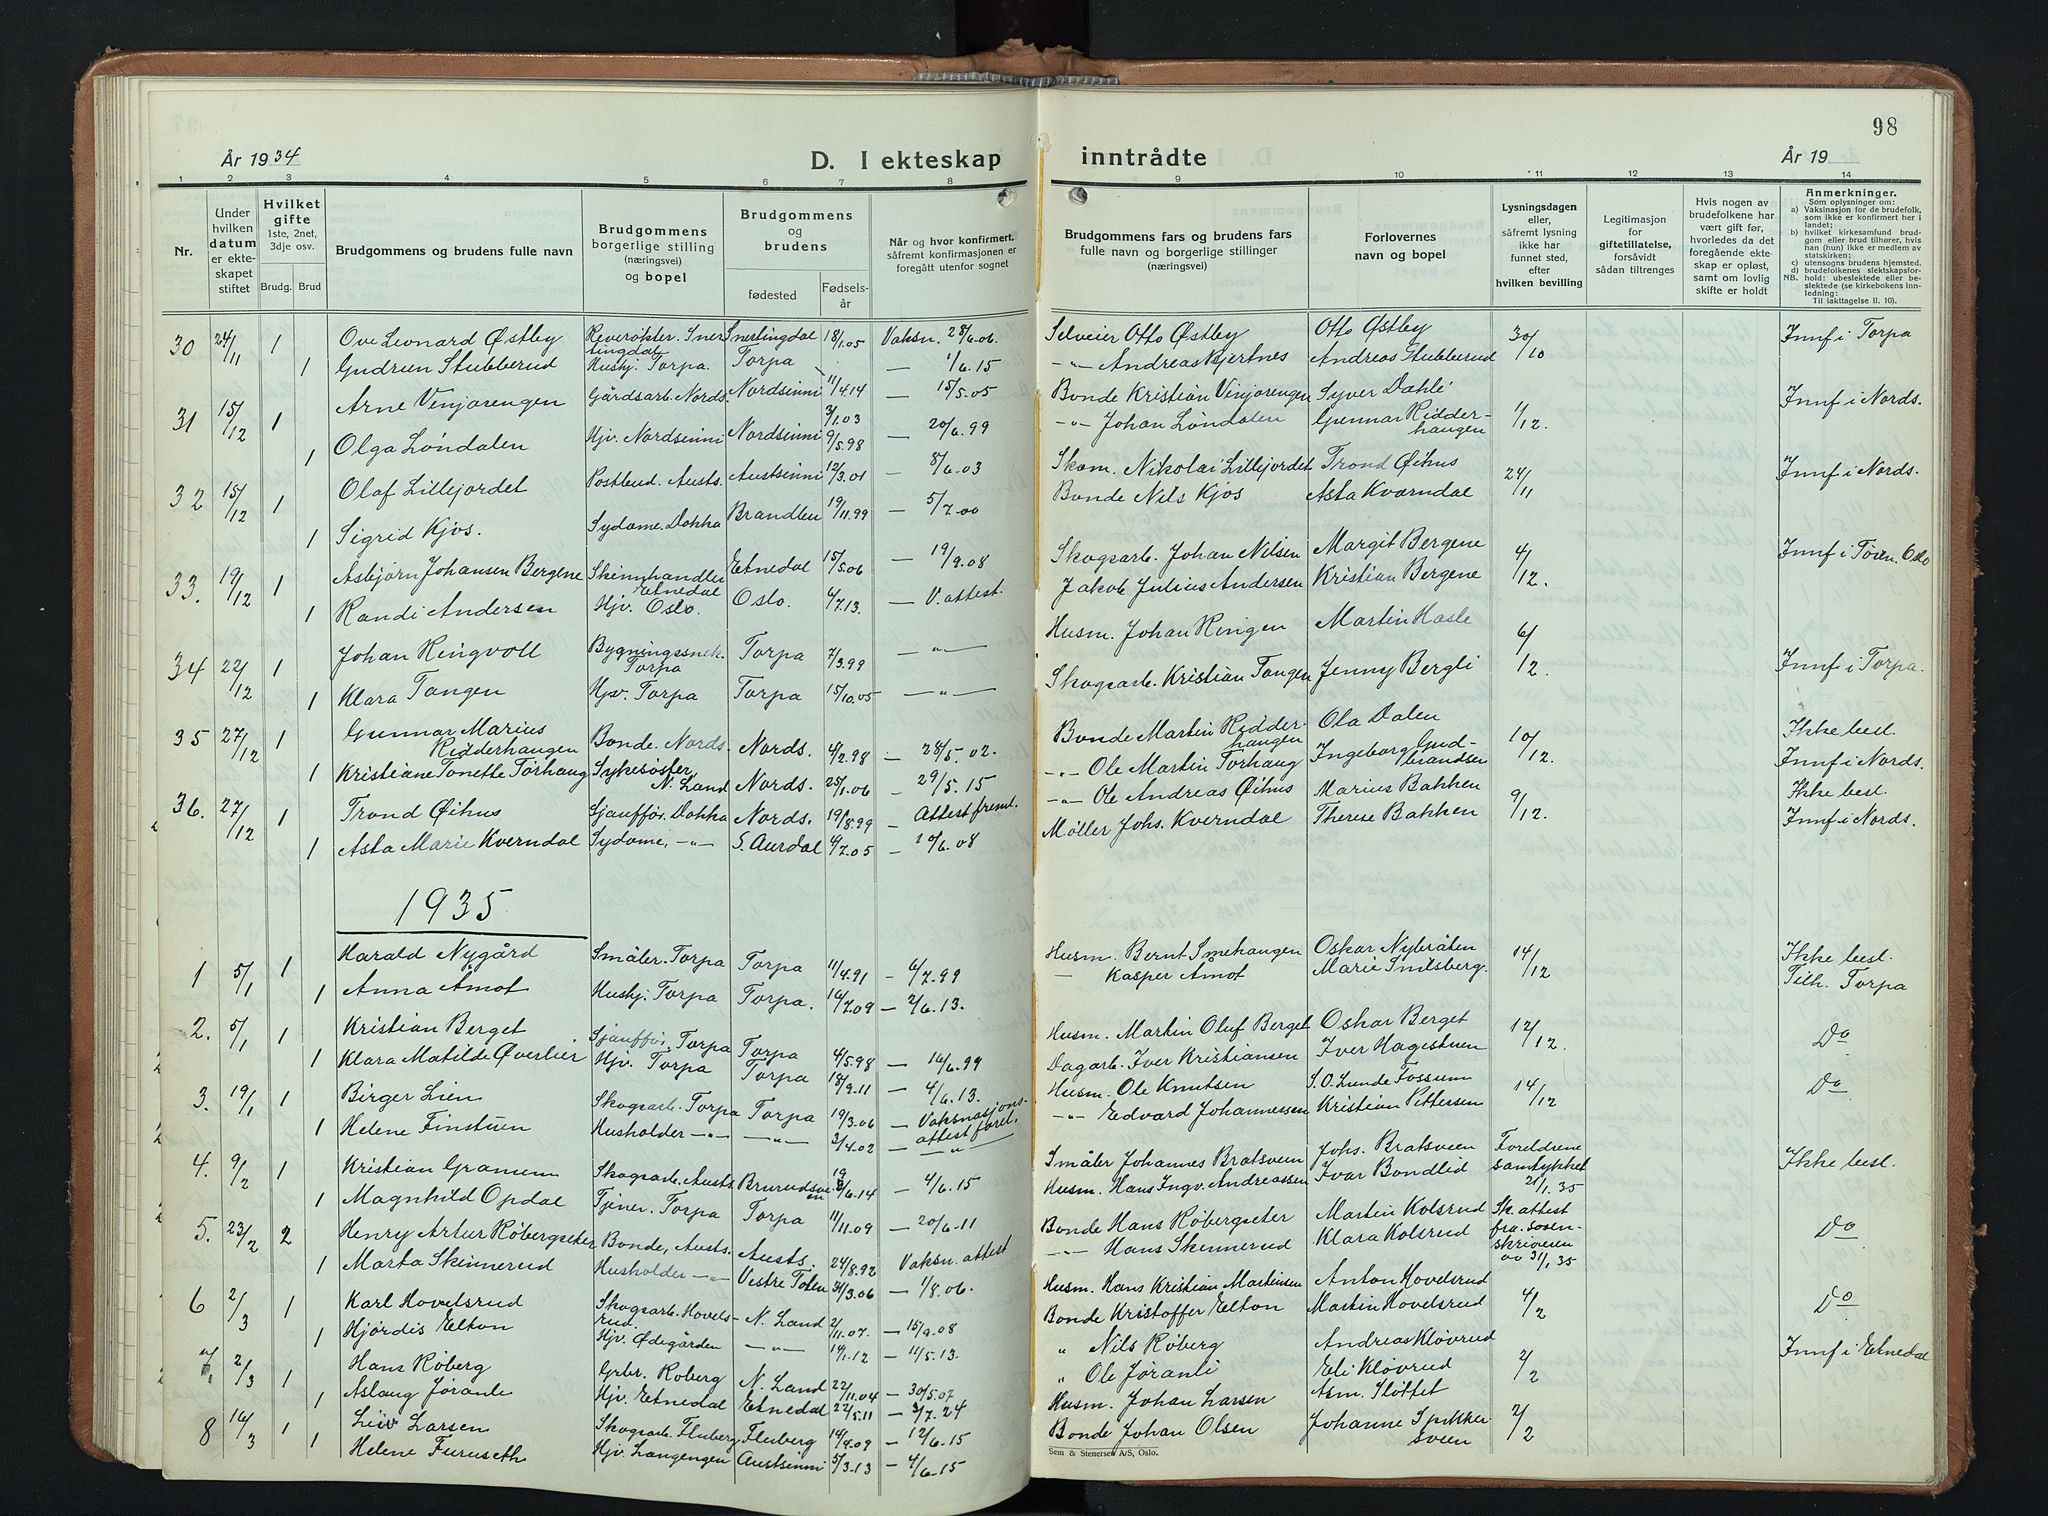 98
År 1934
D. I ekteskap
inntrådte
År 19
1 2 3 4 5 6 7 8 9 10 11 12 13 14
Nr.
Under hvilken datum er ekteskapet stiftet
Hvilket gifte 1ste, 2net, 3dje osv.
Brudg. Brud
Brudgommens og brudens fulle navn
Brudgommens borgerlige stilling (næringsvei) og bopel
Brudgommens og brudens
fødested
Fødselsår
Når og hvor konfirmert, såfremt konfirmasjonen er foregått utenfor sognet
Brudgommens fars og brudens fars fulle navn og borgerlige stillinger (næringsvei)
Forlovernes navn og bopel
Lysningsdagen eller, såfremt lysning ikke har funnet sted, efter hvilken bevilling
Legitimasjon for giftetillatelse, forsåvidt sådan tiltrenges
Hvis nogen av brudefolkene har vært gift før, hvorledes da det foregående ekteskap er opløst, samt om lovlig skifte er holdt
Anmerkninger.
Som oplysninger om:
a) Vaksinasjon for de brudefolk, som ikke er konfirmert her i landet;
b) hvilket kirkesamfund brudgom eller brud tilhører, hvis han (hun) ikke er medlem av statskirken;
c) utensogns brudens hjemsted.
d) brudefolkenes slektskapsforhold: ubeslektede eller beslektede (se kirkebokens innledning;
NB. Til iakttagelse II. 10).
30 24/11 1 Ove Leonard Østby Reverøkter. Snertingdal Snertingdal 18/1.05 Vaksn. 28/6.06. Selveier Otto Østby Otto Østby 30/10 Innf i Torpa
1 Gudrun Stubberud Hushj. Torpa. Torpa — 1/6.15 -"- Andreas Bjertnes Andreas Stubberud
31 15/12 1 Arne Vinjarengen Gårdsarb. Nords. Nordsinni 11/4.14 — 15/5.05 Bonde Kristian Vinjarengen Syver Dahle 1/12. Innf i Nords.
1 Olga Løndalen Hjv. Nordsinni Nordsinni 3/1.03 — 20/6.99 -"- Johan Løndalen Gunnar Ridderhaugen
32 15/12 1 Olaf Lillejordet Postbud. Austs. Austsinni 9/5.98 12/3.01 — 8/6.03 Skom. Nikolai Lillejordet Trond Øihus 24/11 Innf i Nords.
1 Sigrid Kjos. Sydame. Dokka Brandbu 19/11.99 — 5/7.00 Bonde Nils Kjos Asta Kverndal
33. 19/12 1 Asbjørn Johansen Bergene Skinnhandler Etnedal Etnedal 15/5.06 — 19/9.08 Skogsarb. Johan Nilsen Margit Bergene 4/12. Innf i Tøien. Oslo
1 Randi Andersen Hjv. Oslo. Oslo. 6/7.13. — V. attest. Jakob Julius Andersen Kristian Bergene
34 22/12 1 Johan Ringvoll Bygningssnek. Torpa Torpa 7/3.99 —"— Husm. Johan Ringen Martin Hasle 6/12. Innf i Torpa.
1 Klara Tangen Hjv. Torpa Torpa 15/10.05 —"— Skogsarb. Kristian Tangen Jenny Bergli
35 27/12 1 Gunnar Marius Ridderhaugen Bonde. Nords. Nords. 4/2.98 — 28/5.02. Bonde Martin Ridderhaugen Ola Dalen 10/12. Ikke besl.
1 Kristiane Tonette Torhaug Sykesøster, N. Land Nords. 25/1.06 — 29/5.15 -"- Ole Martin Torhaug Ingeborg Gudbrandsen Innf i Nords.
36. 27/12 1 Trond Øihus Sjauffør. Dokka Nords. 19/8.99 — Attest freml. -"- Ole Andreas Øihus Marius Bakken 9/12. Ikke besl
1 Asta Marie Kverndal Sydame, -"- S. Aurdal 6/7.05 — 10/6.08 Møller Johs. Kverndal Therese Bakken Innf i Nords.
1935
1 5/1 1 Harald Nygård Småbr. Torpa Torpa 11/4.91 — 6/7.99 Husm. Bernt Smehaugen Oskar Nybråten 14/12 Ikke besl.
1 Anna Åmot Hushj. Torpa Torpa. 10/7.09 — 2/6.13. — Kasper Åmot Marie Indsberg. Tilh. Torpa
2. 5/1 1 Kristian Berget Sjauffør. Torpa Torpa 4/5.98 — 16/6.99 Husm. Martin Oluf Berget Oskar Berget 12/12. Do
1 Klara Matilde Øverlier Hjv. Torpa Torpa 18/9.11 — 4/6.13. Dagarb. Iver Kristiansen Iver Hagestuen
3. 19/1 1 Birger Lien Skogsarb. Torpa Torpa 19/3.06 — Vaksnasjonsattest forel. Husm. Ole Knutsen S. O. Lunde Fossum 14/12 Do
1 Helene Finstuen Husholder -"- —"— 3/4.02 — " -"- Edvard Johannessen Kristian Pettersen
4. 9/2 1 Kristian Gramem Skogsarb. Austs. — 4/6.15 Småbr Johannes Bratsveen Johs. Bratsveen Foreldrene samtykket 21/1.35 Ikke besl.
1 Magnhild Opdal Tjener. Torpa Torpa 11/11.09 — 20/6.11 Husm. Hans Ingv. Andreassen Ivar Bondlid
5. 23/2 2 Henry Artur Røbergseter Bonde, Austs. Austs. 24/8.92 Vaksn. attest Bonde Hans Røbergseter Martin Kolsrud Sk. attest fra sorenskriveren av 31/1.35 Do
1 Marta Skinnerud Husholder -"- Vestre Toten 31/3.06 — 1/8.06. -"- Hans Skinnerud Klara Kolsrud
6 2/3 1 Karl Hovelsrud Skogsarb. Hovelsrud N. Land 2/11.07. — 15/9.08 Husm. Hans Kristian Martinsen Anton Hovelsrud 4/2 Do
1 Hjørdis Elton Hjv. Ødegården —"— 19/1.12 — 11/5.13. Bonde Kristoffer Elton Martin Hovelsrud
7. 2/3 1 Hans Røberg Grbr. Røberg N. Land 22/11.04 — 30/5.07 " Nils Røberg Andreas Kløvrud 2/2 Innf i Etnedal
1 Aslaug Jøranli Hjv. Etnedal Etnedal 22/5.11 — 3/7.24 " Ole Jøranli Eli Kløvrud
8 16/3 1 Leiv Larsen Skogsarb. Fluberg Fluberg 14/4.09 — 12/6.15 Husm. Johan Larsen Asm. Slottet 2/2
1 Helene Furuseth Hjv. Langengen Austsinni 5/3.13 — 4/6.15 Bonde Johan Olsen Johanne Spikkersveen
Sem & Stenersen A/S, Oslo.